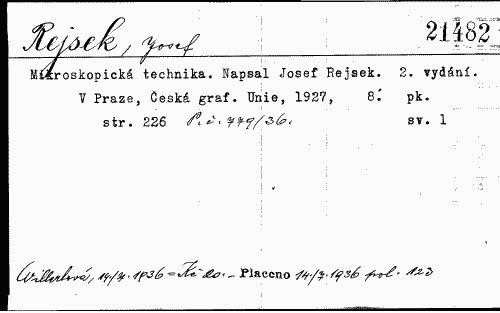 Rejsek, Josef
21482
Mikroskopická technika. Napsal Josef Rejsek. 2. vydání.
V Praze, Česká graf. Unie, 1927, 8°. pk.
str. 226 P. č. 779/36. sv. 1
14/7. 1936 = Kč 20.- Placeno 14/7. 1936 pol. 123